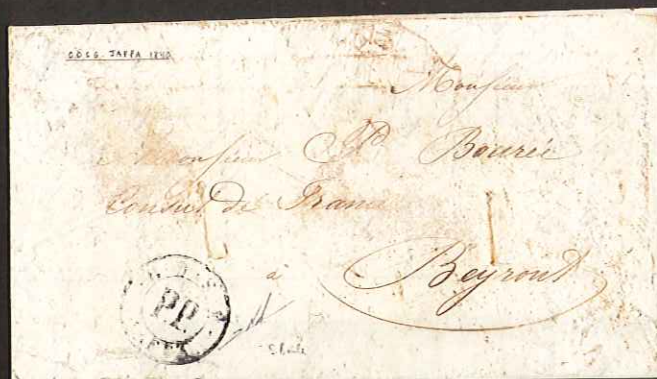 COSS. JAFFA 1840
Monsieur
Monsieur Bourée
Consul de France
à Beyrout
PP